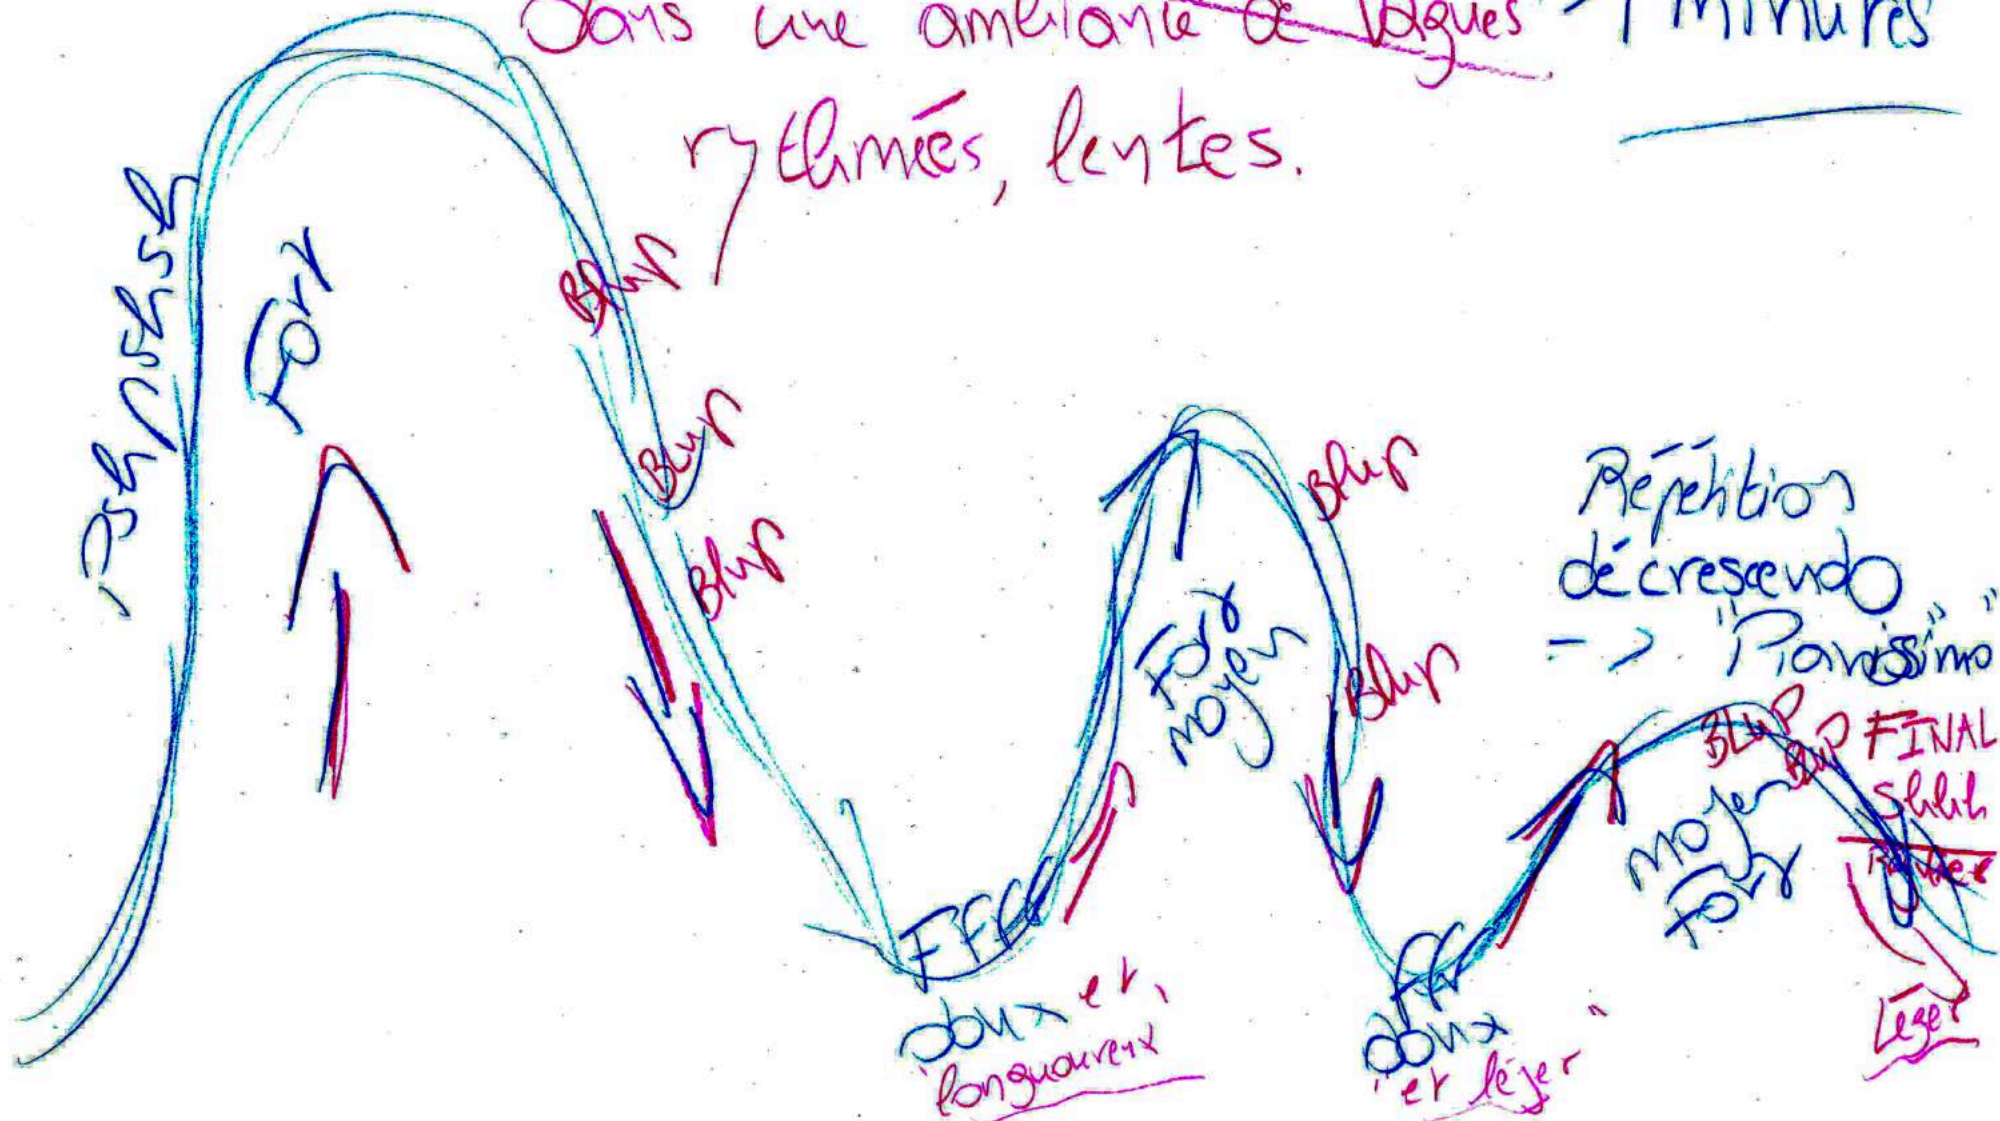 Dans une ambiance de vagues
minutes
rythmées, lentes.
Pshpshsh
Fort
Blup
Blup
Blup
FFF
doux et
langoureux
Fort
moyen
Blup
Blup
FFF
doux
et léger
Répétition
décrescendo
-> "Pianissimo"
BLUP
BLUP
moyen
Fort
FINAL
Shhh
Léger